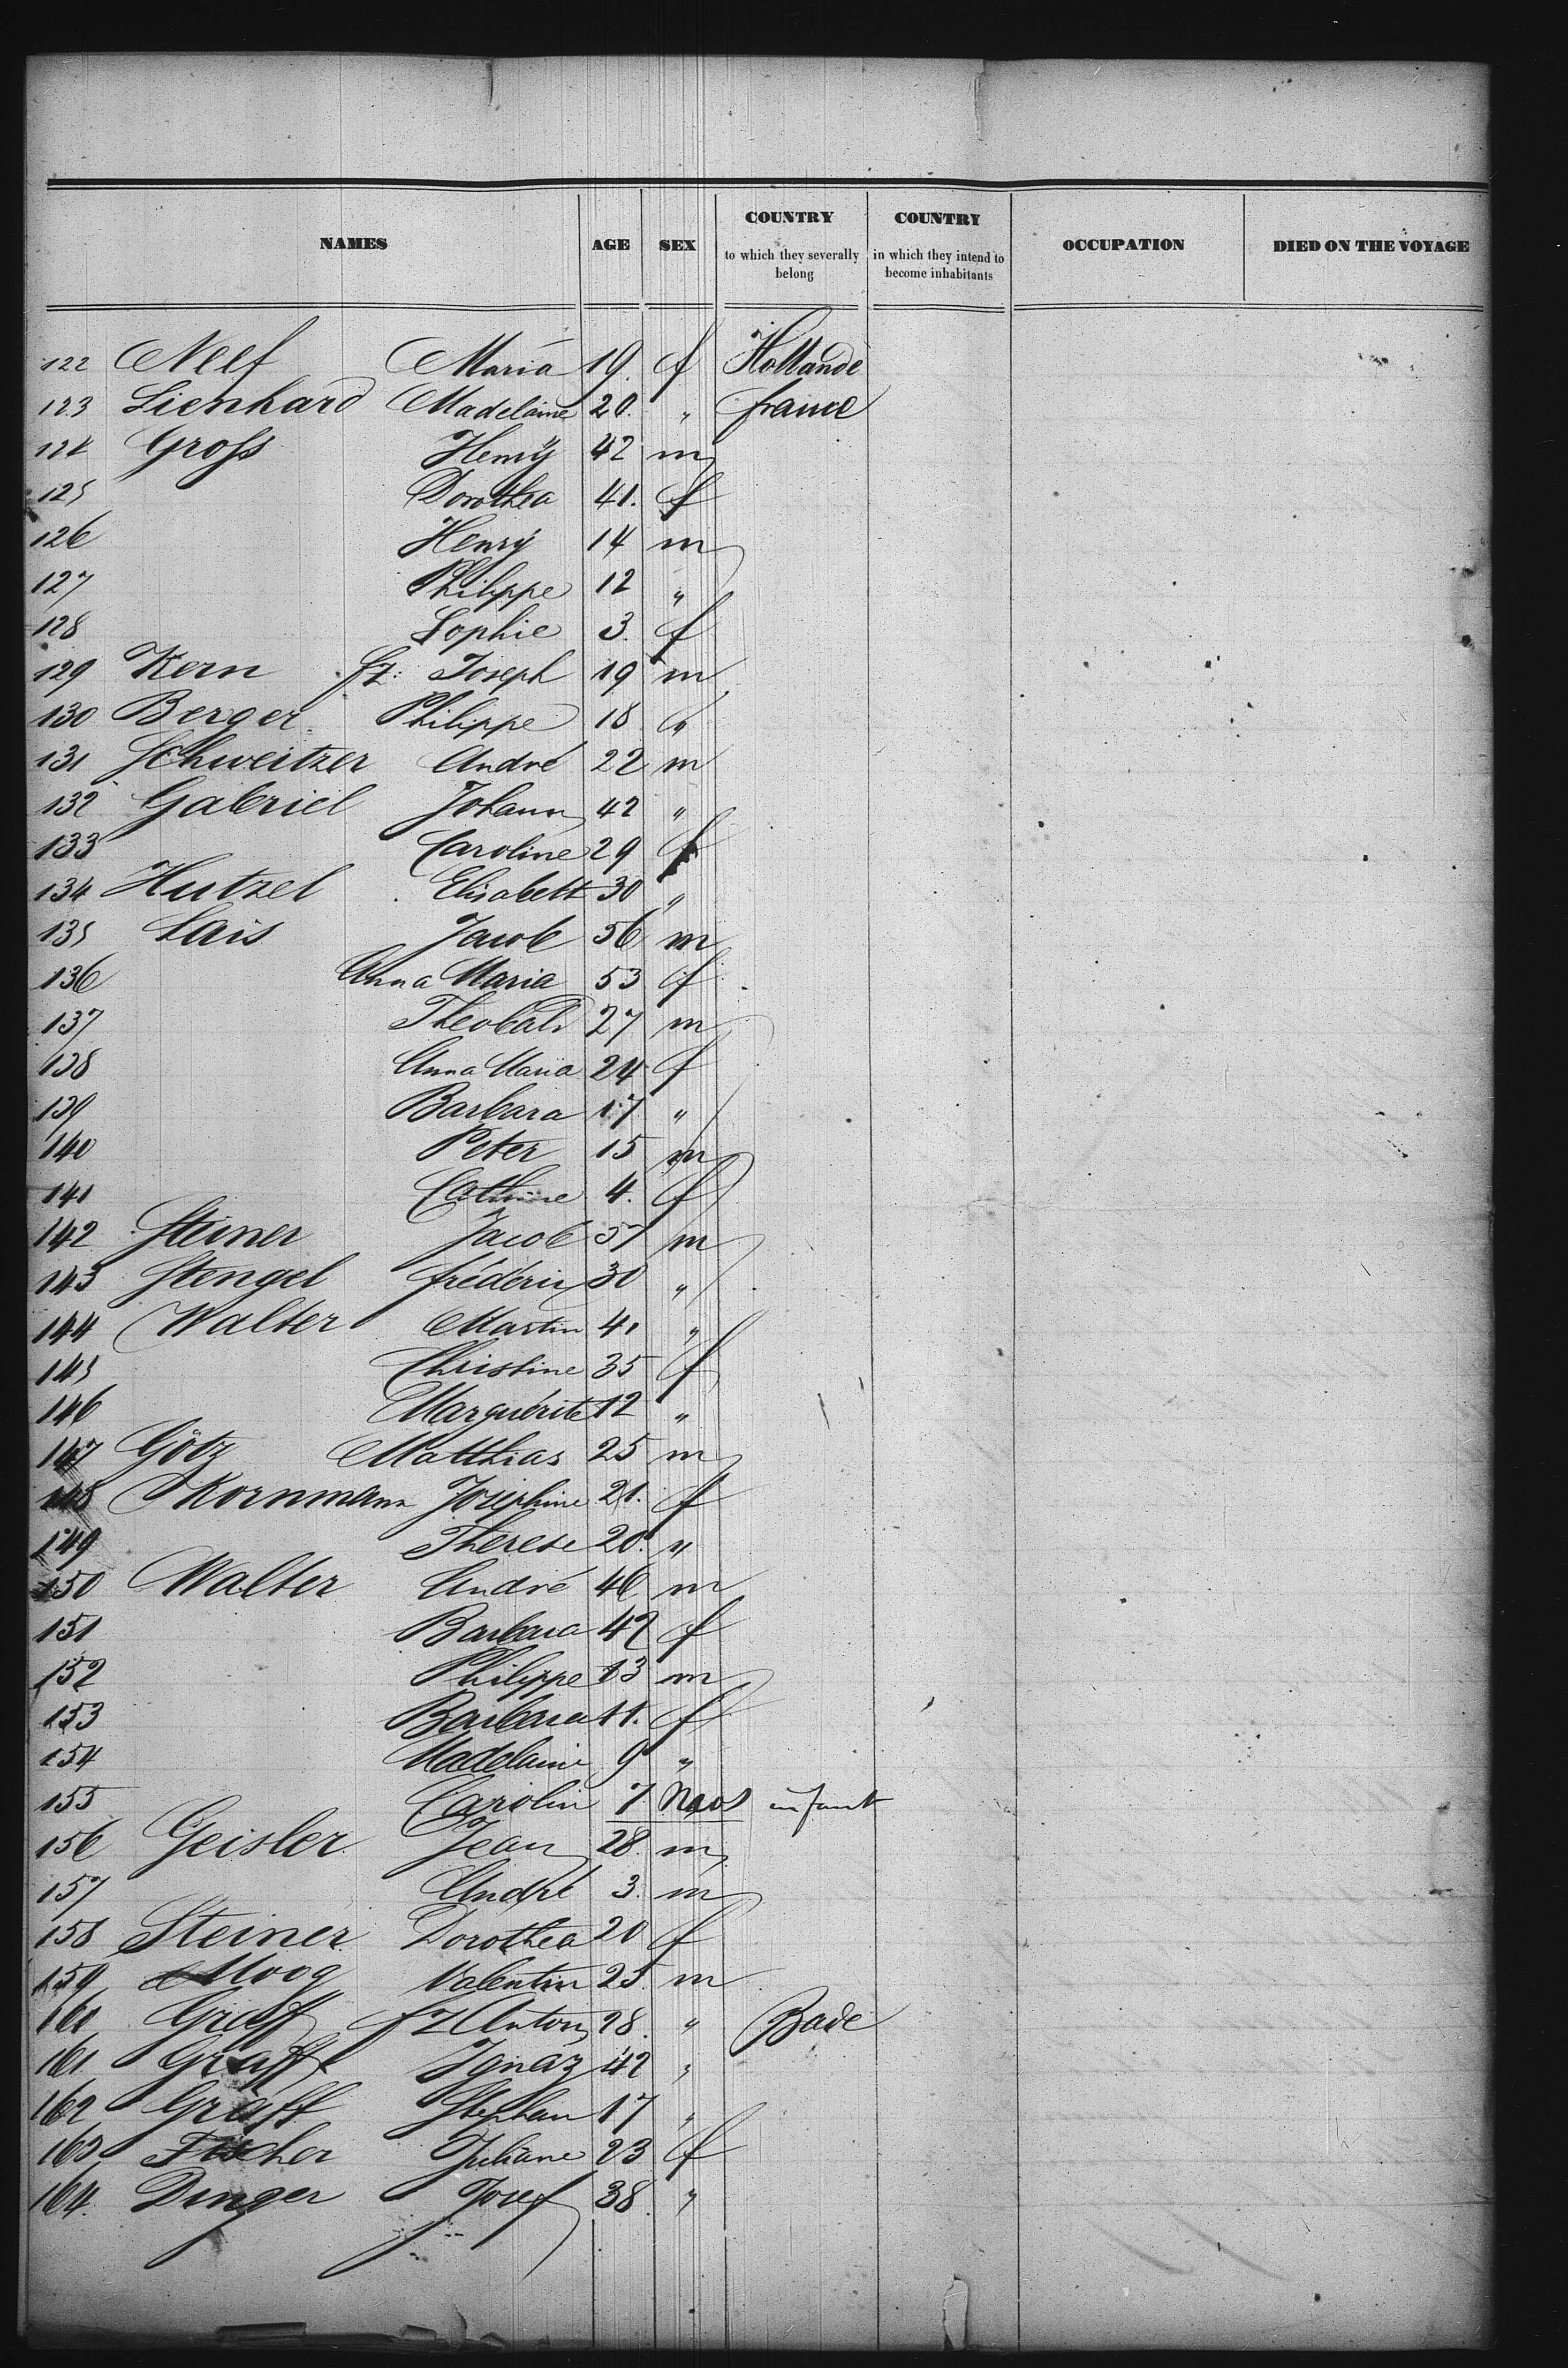 NAMES AGE SEX COUNTRY to which they severally belong COUNTRY in which they intend to become inhabitants OCCUPATION DIED ON THE VOYAGE
122 Neef Maria 19. f Hollande
123 Lienhard Madelaine 20. " france
124 Groſs Henry 42 m
125 Dorothea 41. f
126 Henry 14 m
127 Philippe 12 "
128 Sophie 3. f
129 Kern fz: Joseph 19 m
130 Berger Philippe 18 "
131 Schweitzer André 22 m
132 Gabriel Johann 42 "
133 Caroline 29 f
134 Hutzel Elisabeth 30 "
135 Lais Jacob 56 m
136 Anna Maria 53 f
137 Theobald 27 m
138 Anna Maria 24 f
139 Barbara 17 "
140 Peter 15 m
141 4. f
142 Steiner Jacob 57 m
143 Stengel frédéric 30 "
144 Walter Martin 41 "
145 Christine 35 f
146 Marguérite 12 "
147 Götz Matthias 25 m
148 Kornmann Josephine 21. f
149 Therese 20. "
150 Walter André 46 m
151 Barbara 42 f
152 Philippe 13 m
153 Barbara 11. f
154 Madelaine 9 "
155 Carolin 7 mos infant
156 Geisler Jean 28. m
157 André 3. m
158 Steiner Dorothea 20 f
159 Moog Valentin 25 m
160 Graff fz Anton 28. " Bade
161 Graff Ignaz 42 "
162 Graff Stephan 17 "
163 Fischer Juliane 23 f
164. Dinger Josef 38. "